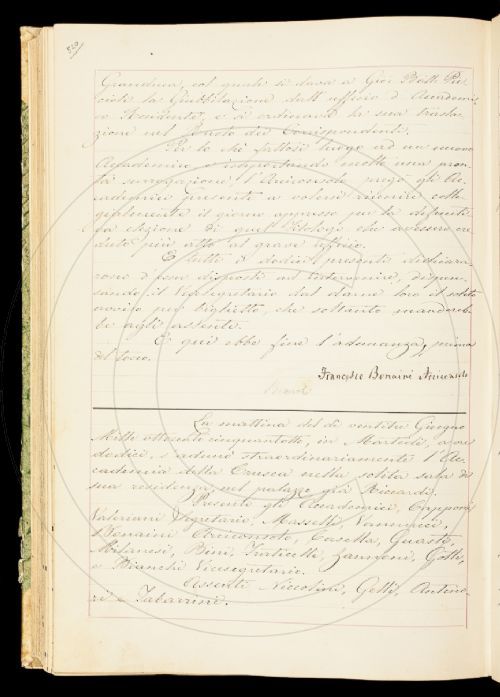 320
Granduca, col quale si dava a Gio: Batt: Pic-
cioli la Giubbilazione dall'ufficio d'Accademi-
co Residente, e si ordinava la sua trasla-
zione nel ruolo dei Corrispondenti.
Per lo che fattosi luogo ad un nuovo
Accademico e importando molto una pron-
ta surrogazione, l'Arciconsolo pregò gli Ac-
cademici presenti a volersi riunire colle-
gialmente il giorno appresso per la definiti-
va elezione di quel Filologo che avessero cre-
duto più atto al grave ufficio.
E tutti i dodici presenti dichiara-
rono d'esser disposti ad intervenire, dispen-
sando il Vicesegretario dal darne loro il solito
avviso per biglietto, che soltanto mandereb-
be agli assenti.
E qui ebbe fine l'adunanza, prima
del tocco.
Francesco Bonaini Arciconsolo
La mattina del dì ventitre Giugno
Mille ottocento cinquantotto, in Martedì, a ore
dodici, s'adunò straordinariamente l'Ac-
cademia della Crusca nella solita sala di
sua residenza, nel palazzo già Riccardi.
Presenti gli Accademici, Capponi
Valeriani Segretario, Masselli Vannucci,
Bonaini Arciconsolo, Casella, Guasti,
Milanesi, Bini, Fraticelli, Zannoni, Gotti,
e Bianchi Vicesegretario.
Assenti Niccolini, Gelli, Antino-
ri e Tabarrini.